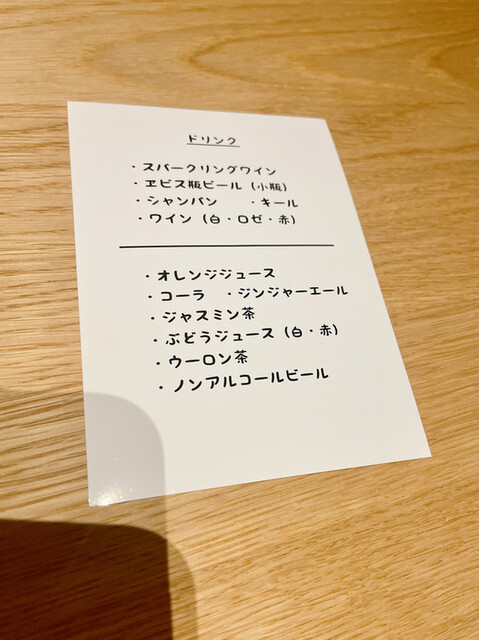 ドリンク
・スパークリングワイン
・ヱビス瓶ビール（小瓶）
・シャンパン ・キール
・ワイン（白・ロゼ・赤）
・オレンジジュース
・コーラ ・ジンジャーエール
・ジャスミン茶
・ぶどうジュース（白・赤）
・ウーロン茶
・ノンアルコールビール